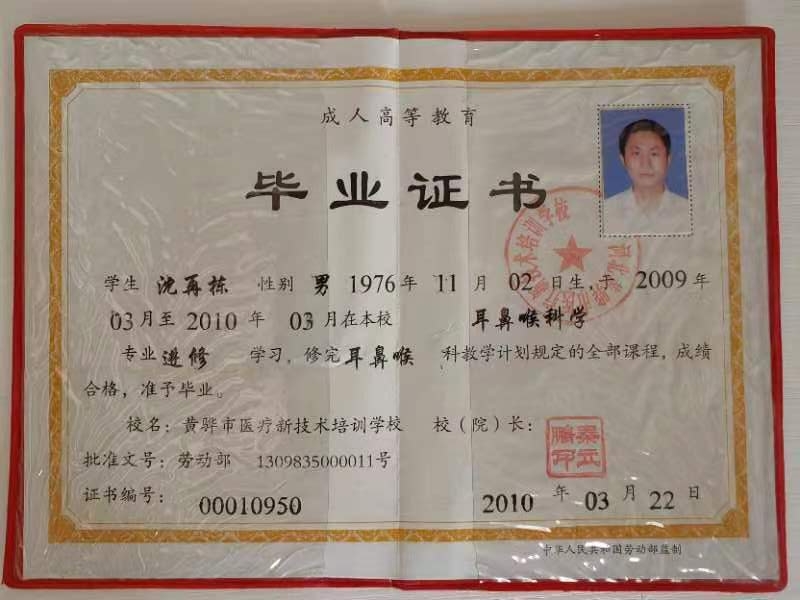 成人高等教育
毕业证书
学生 沈再栋 性别 男 1976年 11月 02日生,于 2009年
03月至 2010年 03月在本校 耳鼻喉科学
专业 进修 学习,修完 耳鼻喉 科教学计划规定的全部课程,成绩
合格,准予毕业。
校名:黄骅市医疗新技术培训学校 校(院)长:
批准文号:劳动部 1309835000011号
证书编号: 00010950 2010年 03月 22日
中华人民共和国劳动部监制